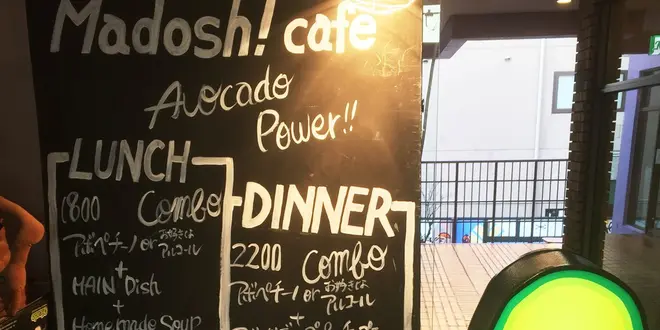 Madosh! cafe
Avocado
Power!!
LUNCH
1800 Combo
アボペチーノ or お好きな アルコール
+
MAIN Dish
+
Homemade Soup
DINNER
2200 Combo
アボペチーノ or お好きな アルコール
+